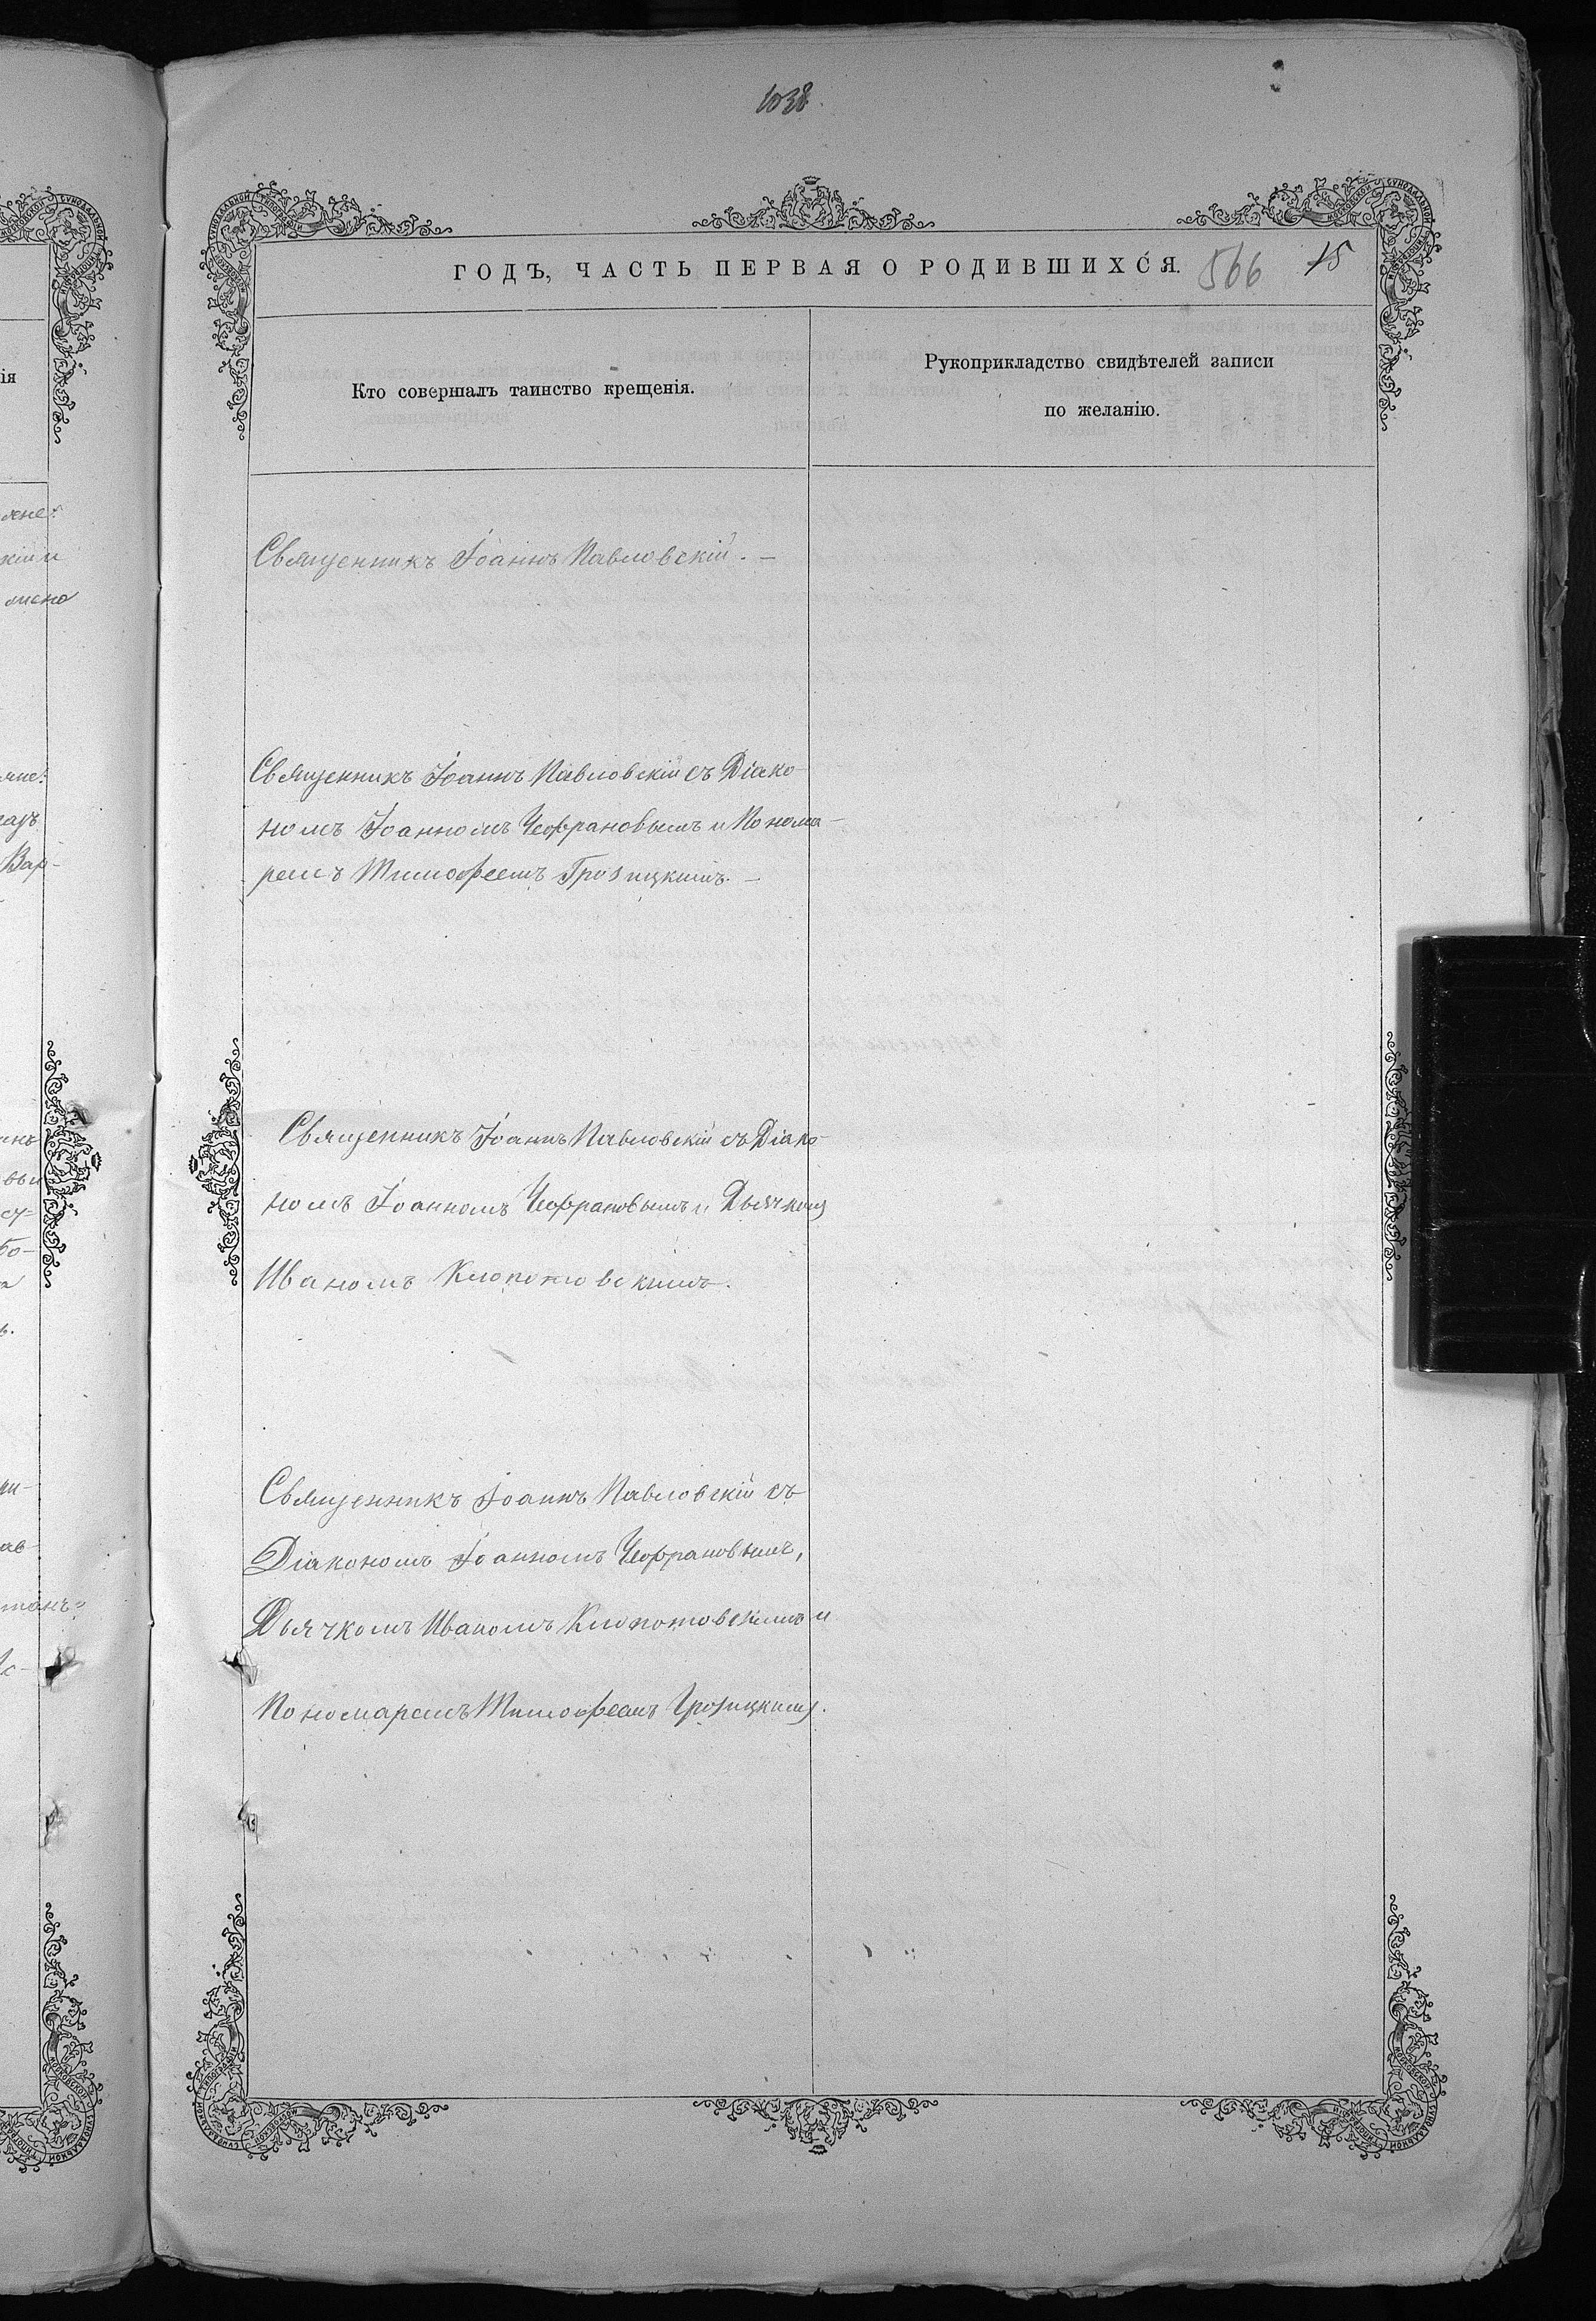 1038
ГОДЪ, ЧАСТЬ ПЕРВАЯ О РОДИВШИХСЯ. 566 15
Кто совершалъ таинство крещенія.
Рукоприкладство свидѣтелей записи
по желанію.
Священникъ Іоаннъ Павловскій. –
Священникъ Іоаннъ Павловскій съ Діако-
номъ Іоанномъ Чефрановымъ и Понома-
ремъ Тимофеемъ Грозицкимъ. –
Священникъ Іоаннъ Павловскій съ Діако-
номъ Іоанномъ Чефрановымъ и Дьячкомъ
Иваномъ Клопотовскимъ.
Священникъ Іоаннъ Павловскій съ
Діакономъ Іоанномъ Чефрановымъ,
Дьячкомъ Иваномъ Клопотовскимъ и
Пономаремъ Тимофеемъ Грозицкимъ.